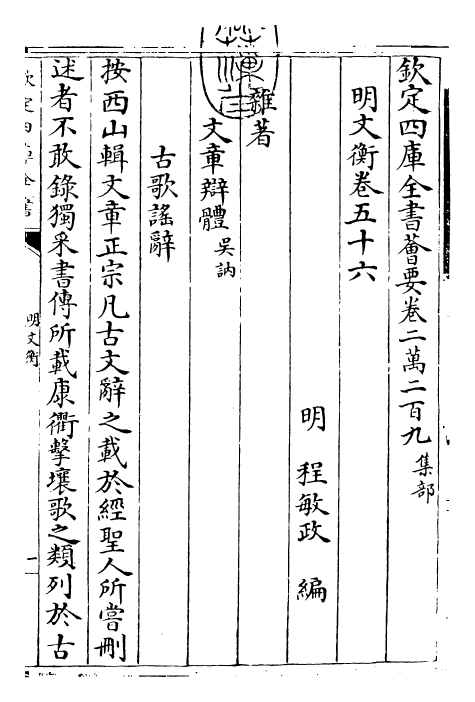 欽定四庫全書薈要卷二萬二百九 集部
明文衡卷五十六
明 程敏政 編
雜著
文章辯體 吳訥
古歌謠辭
按西山輯文章正宗凡古文辭之載於經聖人所嘗刪
述者不敢錄獨采書傳所載康衢擊壤歌之類列於古
欽定四庫全書
明文衡
一